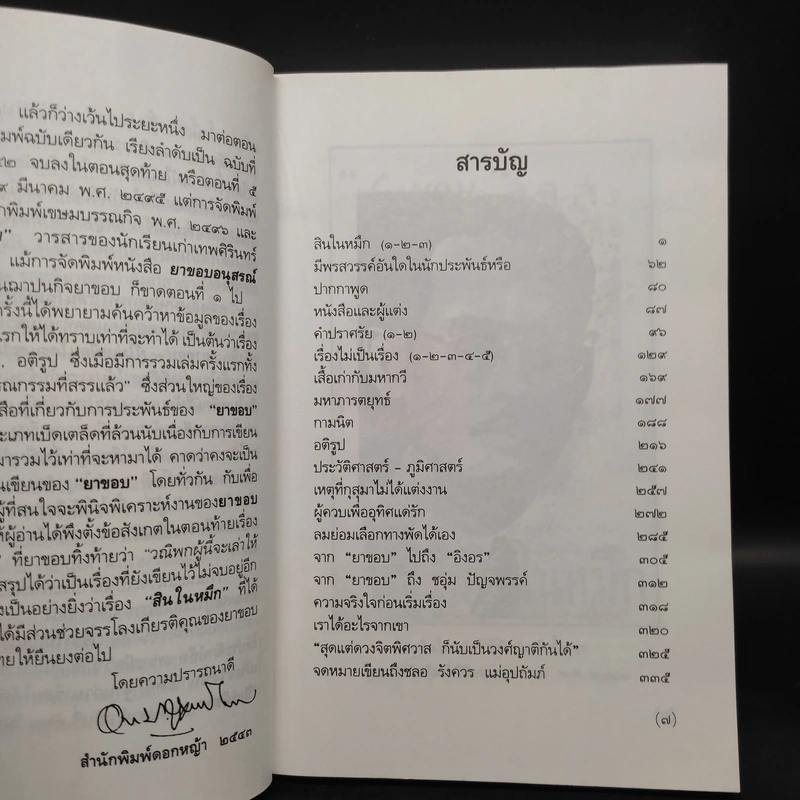 แล้วก็ว่างเว้นไประยะหนึ่ง มาต่อตอน
พิมพ์ฉบับเดียวกัน เรียงลำดับเป็น ฉบับที่
จบลงในตอนสุดท้าย หรือตอนที่ ๕
มีนาคม พ.ศ. ๒๔๙๕ แต่การจัดพิมพ์
พิมพ์เขษมบรรณกิจ พ.ศ. ๒๔๙๖ และ
วารสารของนักเรียนเก่าเทพศิรินทร์
แม้การจัดพิมพ์หนังสือ ยาขอบอนุสรณ์
ฌาปนกิจยาขอบ ก็ขาดตอนที่ ๑ ไป
ครั้งนี้ได้พยายามค้นคว้าหาข้อมูลของเรื่อง
แรกให้ได้ทราบเท่าที่จะทำได้ เป็นต้นว่าเรื่อง
อติรูป ซึ่งเมื่อมีการรวมเล่มครั้งแรกทั้ง
รณกรรมที่สรรแล้ว” ซึ่งส่วนใหญ่ของเรื่อง
สือที่เกี่ยวกับการประพันธ์ของ “ยาขอบ”
ะเภทเบ็ดเตล็ดที่ล้วนนับเนื่องกับการเขียน
มารวมไว้เท่าที่จะหามาได้ คาดว่าคงจะเป็น
นเขียนของ “ยาขอบ” โดยทั่วกัน กับเพื่อ
ผู้ที่สนใจจะพินิจพิเคราะห์งานของยาขอบ
ห้ผู้อ่านได้พึงตั้งข้อสังเกตในตอนท้ายเรื่อง
ที่ยาขอบทิ้งท้ายว่า “วณิพกผู้นี้จะเล่าให้
สรุปได้ว่าเป็นเรื่องที่ยังเขียนไว้ไม่จบอยู่อีก
งเป็นอย่างยิ่งว่าเรื่อง “สินในหมึก” ที่ได้
ได้มีส่วนช่วยจรรโลงเกียรติคุณของยาขอบ
ทยให้ยืนยงต่อไป
โดยความปรารถนาดี
สำนักพิมพ์ดอกหญ้า ๒๕๔๓
สารบัญ
สินในหมึก (๑-๒-๓) ๑
มีพรสวรรค์อันใดในนักประพันธ์หรือ ๖๒
ปากกาพูด ๘๐
หนังสือและผู้แต่ง ๘๗
คำปราศรัย (๑-๒) ๙๖
เรื่องไม่เป็นเรื่อง (๑-๒-๓-๔-๕) ๑๒๙
เสื้อเก่ากับมหากวี ๑๖๙
มหาภารตยุทธ์ ๑๗๗
กามนิต ๑๘๘
อติรูป ๒๑๖
ประวัติศาสตร์ - ภูมิศาสตร์ ๒๔๑
เหตุที่กุสุมาไม่ได้แต่งงาน ๒๕๗
ผู้ควบเพื่ออุทิศแด่รัก ๒๗๒
ลมย่อมเลือกทางพัดได้เอง ๒๘๕
จาก “ยาขอบ” ไปถึง “อิงอร” ๓๐๕
จาก “ยาขอบ” ถึง ชอุ่ม ปัญจพรรค์ ๓๑๒
ความจริงใจก่อนเริ่มเรื่อง ๓๑๘
เราได้อะไรจากเขา ๓๒๐
“สุดแต่ดวงจิตพิศวาส ก็นับเป็นวงค์ญาติกันได้” ๓๒๕
จดหมายเขียนถึงชลอ รังควร แม่อุปถัมภ์ ๓๓๕
(๗)